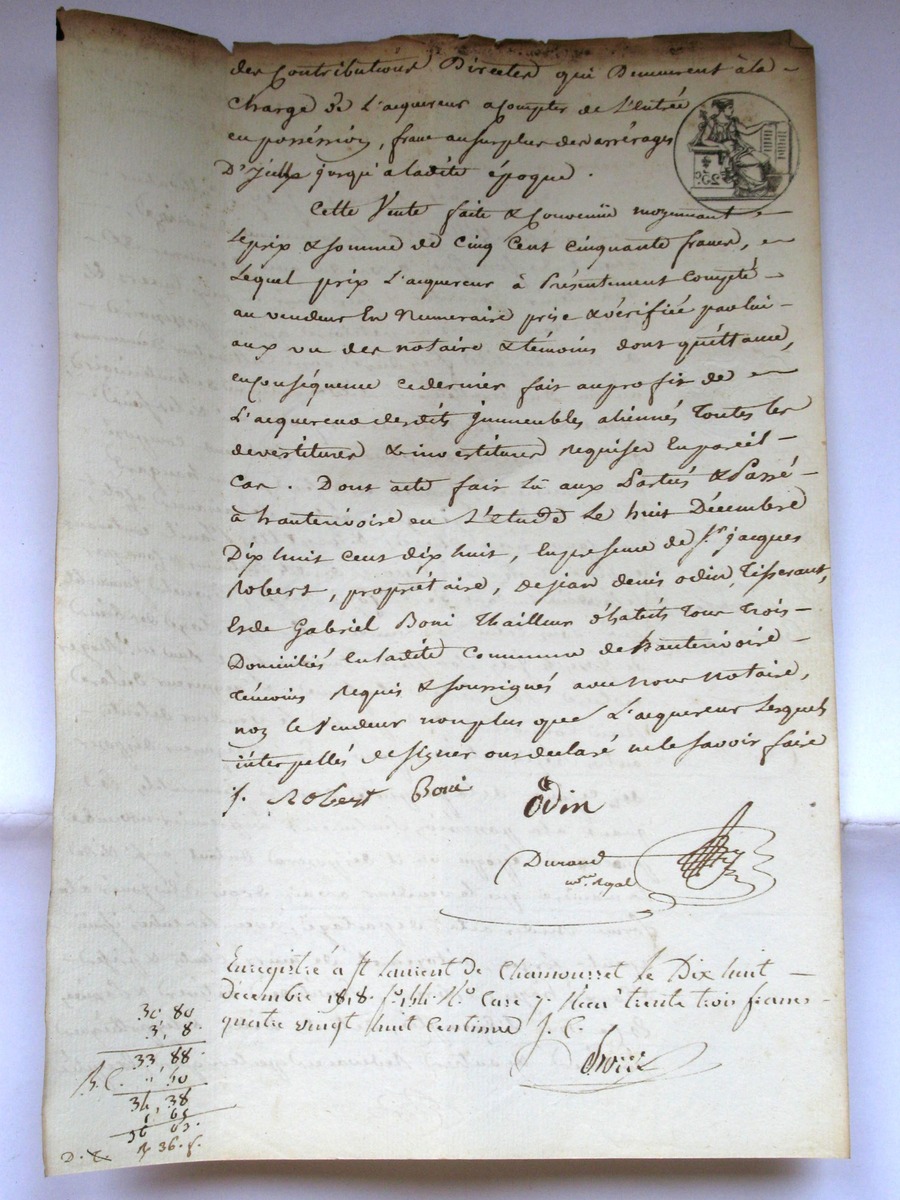 des Contributions Directes qui Demeurent à la -
charge de L'acquereur acompter de L'entrée
en possession, franc ausurplus des arrérages
D'Jcelle jusqu'à ladite époque.
Cette Vente faite & Convenüe moyennant
Le prix & somme de Cinq Cent Cinquante francs,
Lequel prix L'acquereur à Présentement Compté -
au vendeur En Numeraire prise & vérifiée par lui -
aux vu des notaire & témoins dont quittance,
en Conséquence cedernier fait auprofit de
L'acquereur desdits Jmmeubles aliennés Toutes les
devestitures & investitures requises En pareil -
Cas. Dont acte fait Lû aux Parties & Passé -
à hauterivoire en L'étude Le huit Décembre
Dix huit cent dix huit, En presence de Sr. jacques
Robert, propriétaire, de jean denis odin, Tisserant,
Et de Gabriel Boni Thailleur d'habits Tous Trois -
Domiciliés En ladite Commune de hauterivoire -
Témoins Requis & soussignés avec Nous Notaire,
non le Vendeur non plus que L'acquereur Lesquels
interpellés de signer ont declaré ne le savoir faire
J. Robert Boni
Odin
Durand
nre. Royal
Enregistré à St Laurent de Chamousset le Dix huit
décembre 1818. fo. 144. Ro. Case 7. Recu trente trois francs
quatre vingt huit Centimes J. C.
30, 80
3, 8.
33, 88.
B. C. " 50
34, 38
1 65
36 03.
R 36. f.